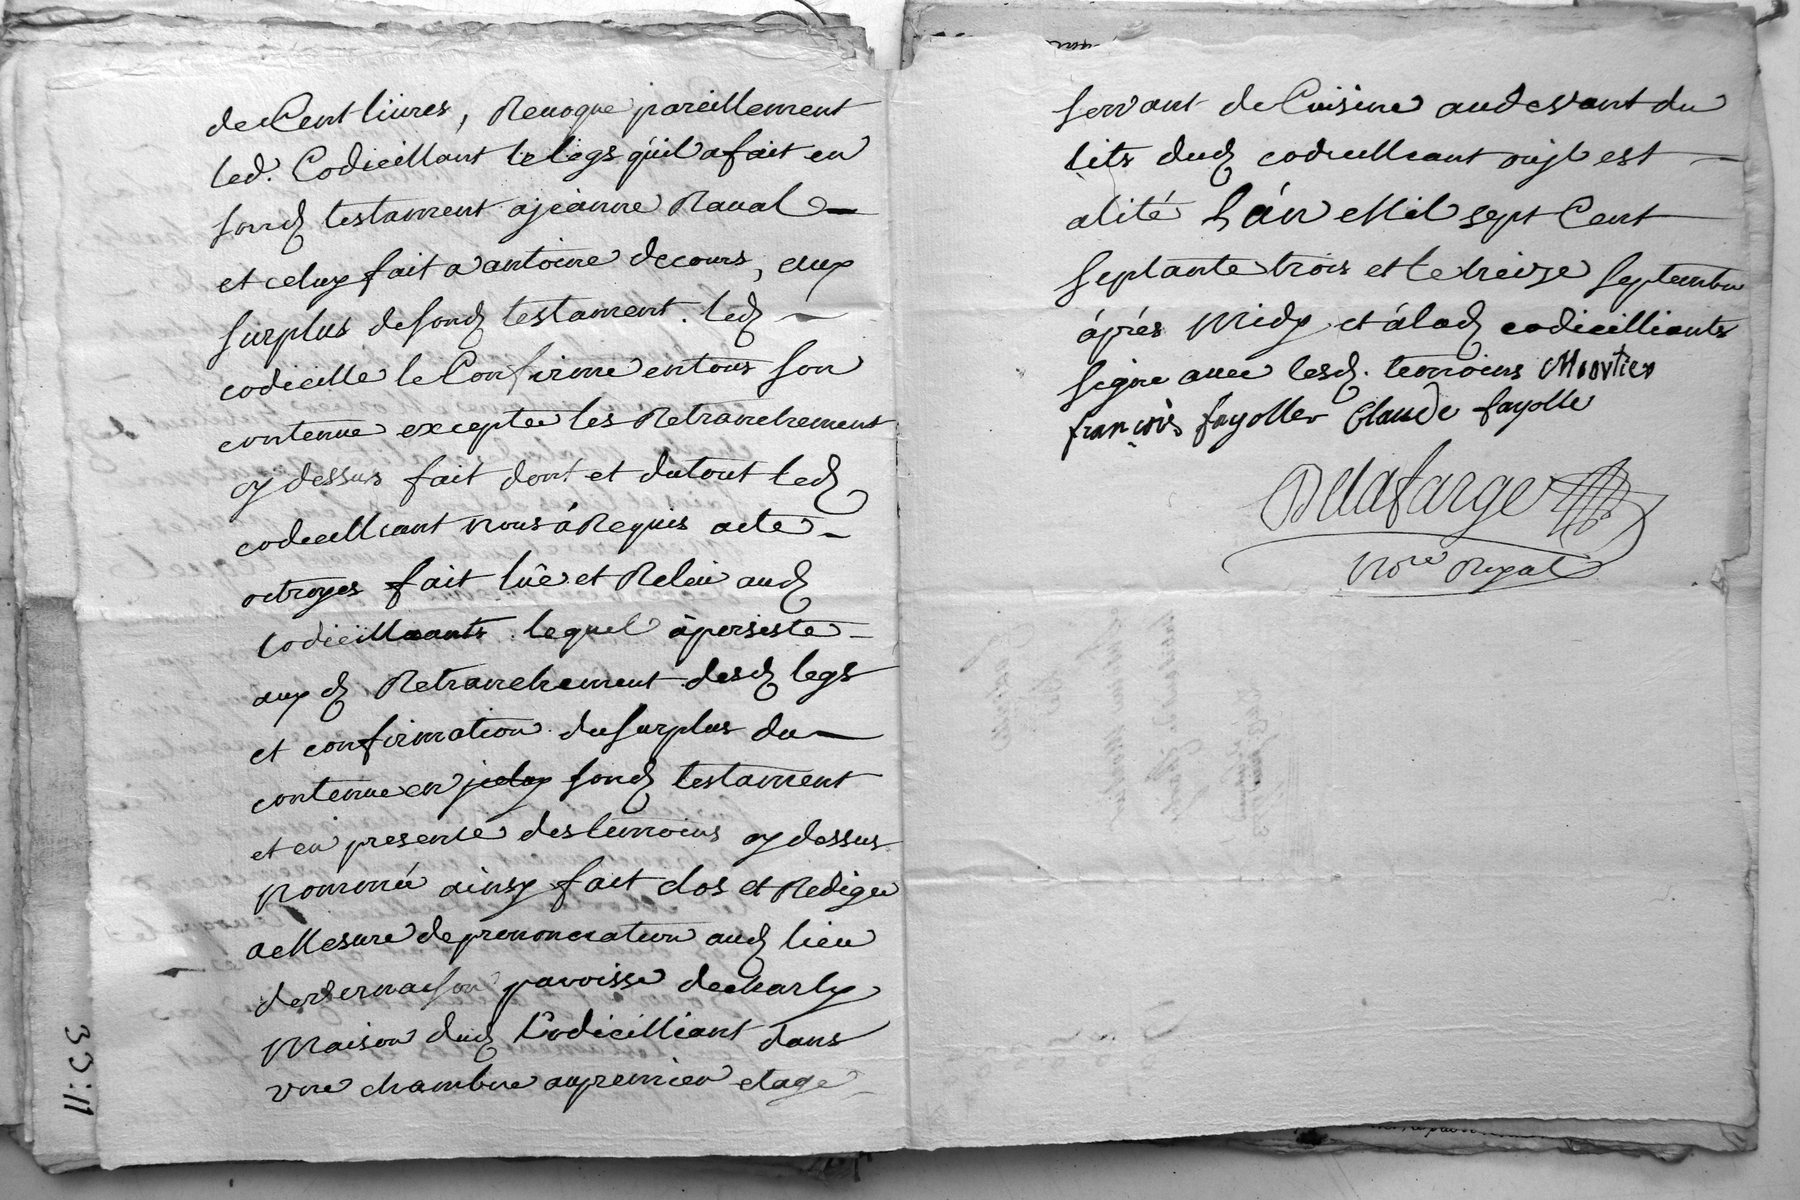 de Cent livres, Revoque pareillement
led. Codicillant le legs qúil a fait en
sond testament a jeanne Raval
et celuy fait a antoine decours, aux
surplus de sond testament. led
codicille le Confirme en tous son
contenue exceptee les Retranchement
cy dessus fait dont et du tout led
codicilliant nous á Requis acte
octroyes fait lûe et Releu aud
Codicilliants lequel à persiste
aux d Retranchement desd legs
et confirmation du surplus du
contenue en sond testament
et en presence des temoins cy dessus
Nommé ainsy fait clos et Redigee
a Mesure de prenonciation aud lieu
de vernaison parroisse de charly
Maison dud Codicilliant dans
vne chambre au premier etage
servant de Cuisine au devant du
lits dud codicilliant oùjl est
alité Lán Mil sept Cent
septante trois et le treize septembre
áprés Midy et á lad codicilliants
signe avec lesd. temoins Moortier
françois fayolle Claude fayolle
Delafarge
No.re Royal
33:11